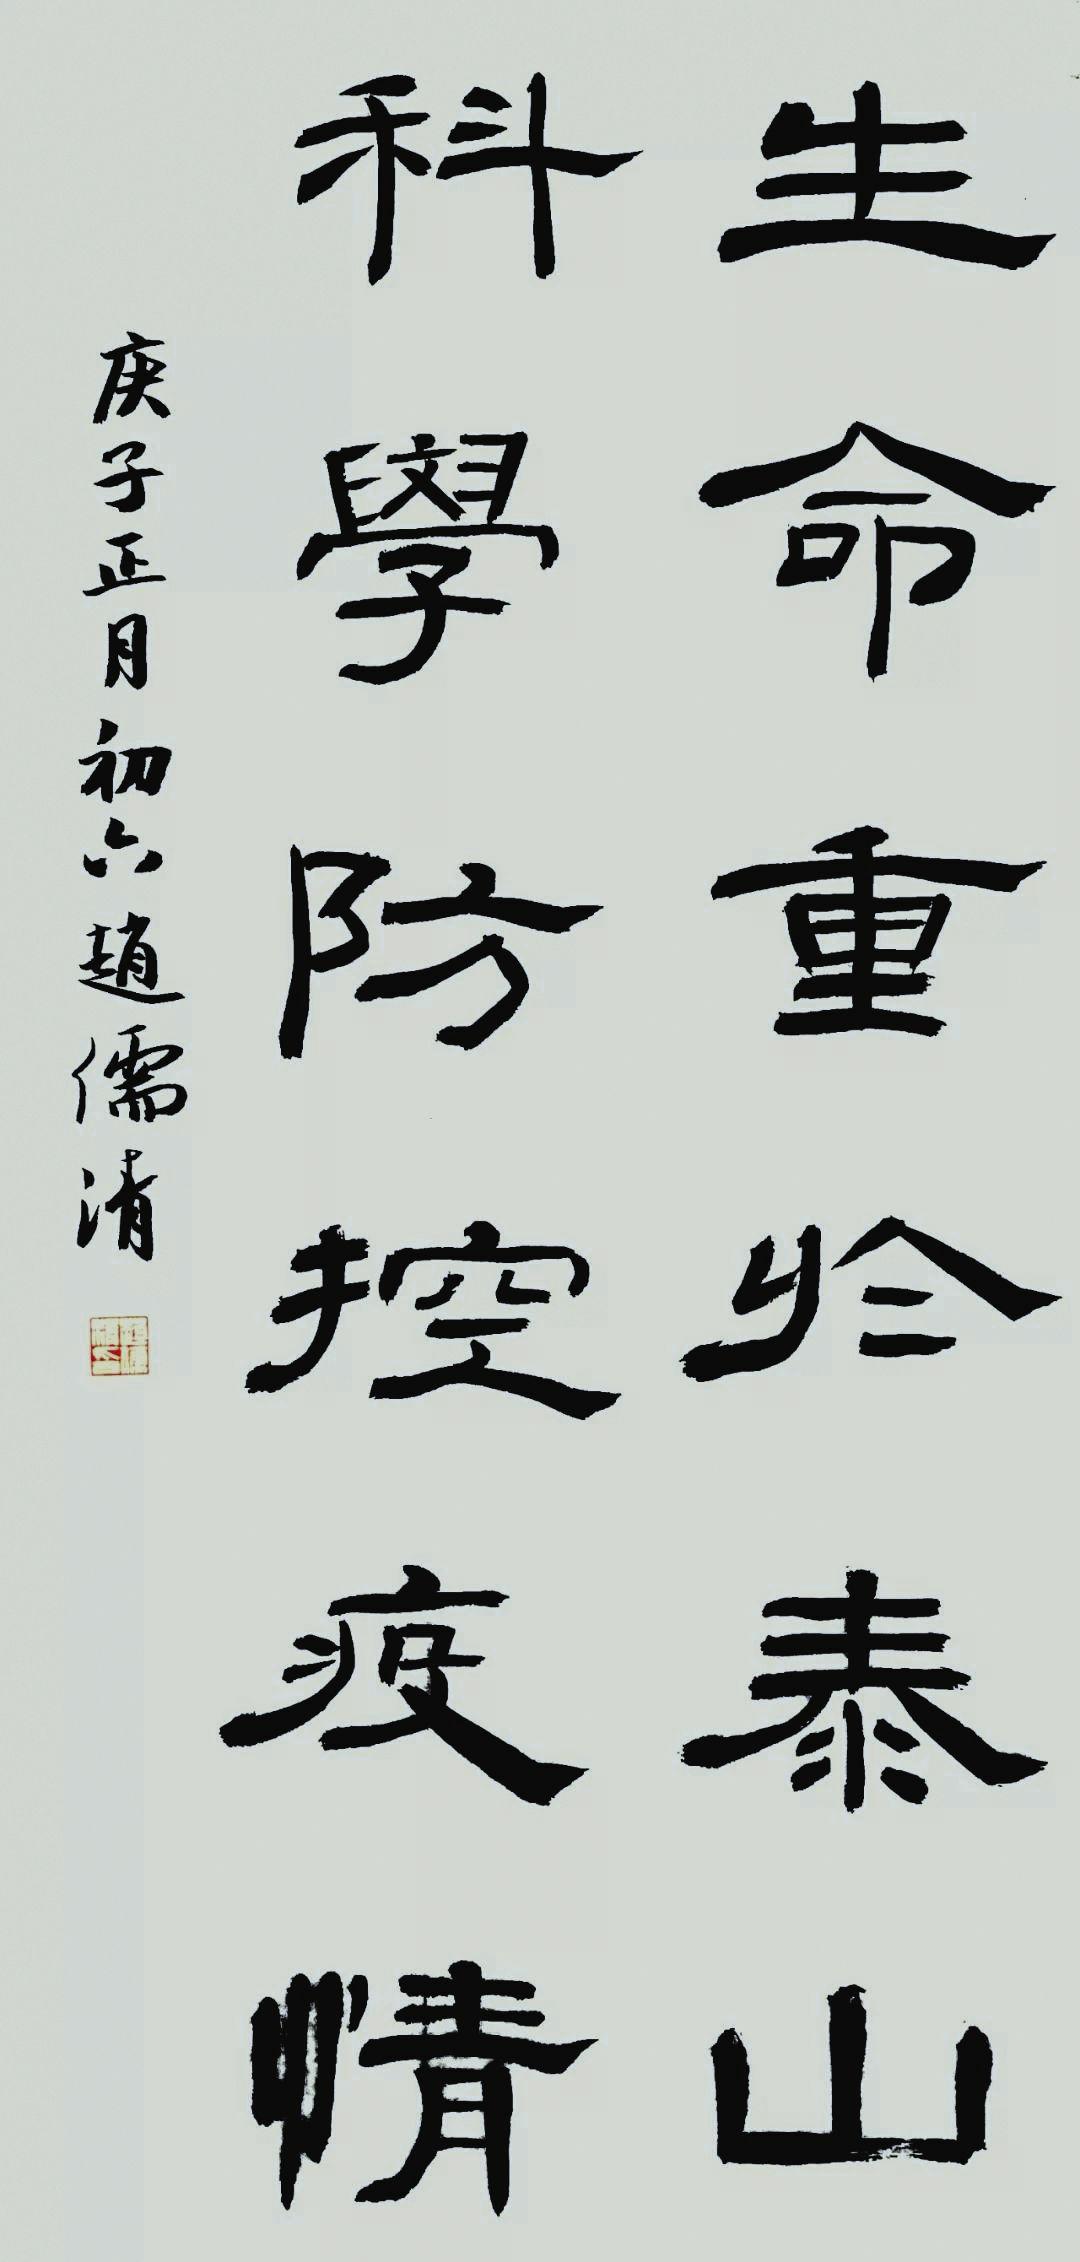 生命重於泰山
科學防控疫情
庚子正月初六趙儒清